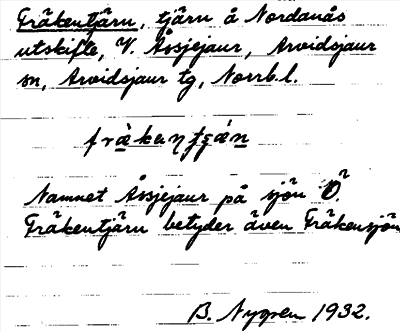 Fräkentjärn, tjärn å Nordanås
utskifte, V. Åssjejaur, Arvidsjaur
sn, Arvidsjaur tg, Norrb.l.
Namnet Åssjejaur på sjön Ö.
Fräkentjärn betyder även Fräkensjön
B. Nygren 1932.